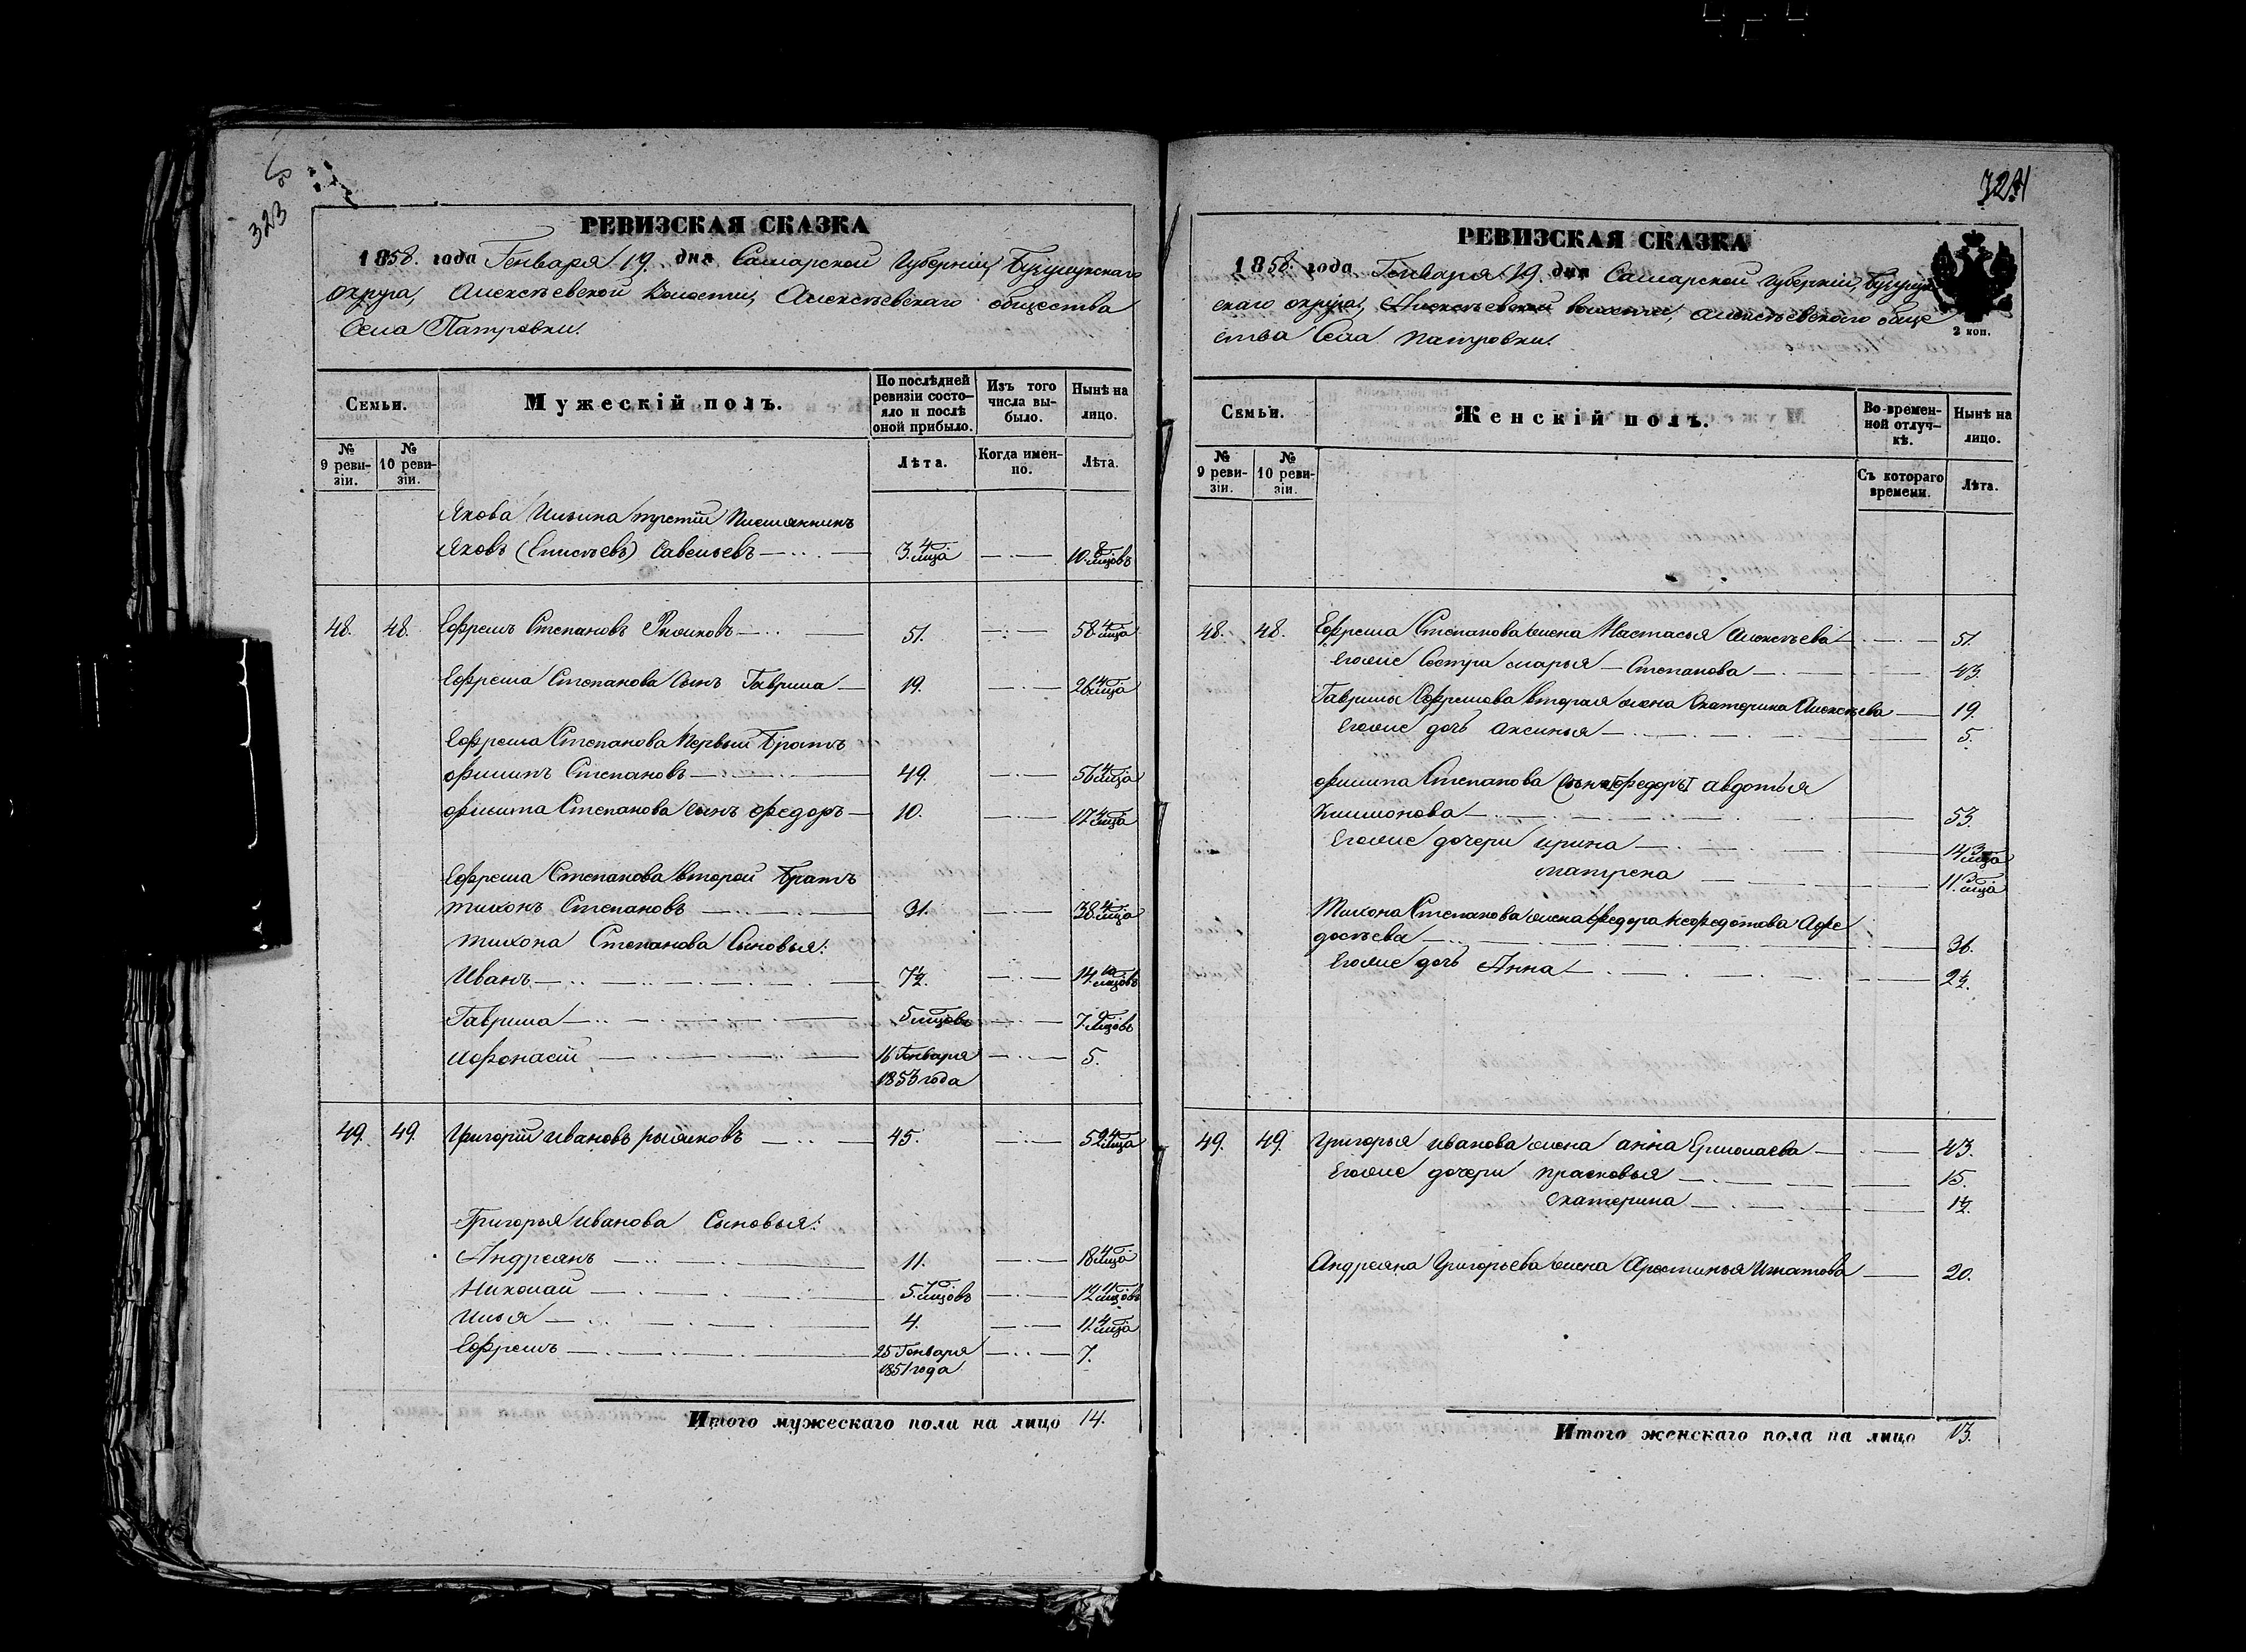 323
РЕВИЗСКАЯ СКАЗКА
1858. года Генваря 19. дня Самарской Губерніи, Бузулукскаго
Округа, Алексѣевской Волости, Алексѣевскаго общества
Села Патровки.
Семьи.
Мужескій полъ.
По послѣдней ревизіи состояло и послѣ оной прибыло.
Изъ того числа выбыло.
Нынѣ на лицо.
№ 9 ревизіи.
№ 10 ревизіи.
Лѣта.
Когда именно.
Лѣта.
Якова Ильина третій
Яковъ (Елисѣевъ) Савельевъ 3. 4 мца 10. 8 мцовъ
48. 48. Ефремъ Степановъ 51. 58 4 мца
Ефрема Степанова Сынъ Гаврила 19. 26 4 мца
Ефрема Степанова Первый Братъ
Филипъ Степановъ 49. 56 4 мца
Филипа Степанова Сынъ Федоръ 10. 17 4 мца
Ефрема Степанова Второй Братъ
Тихонъ Степановъ 31. 38 4 мца
Тихона Степанова Сыновья:
Иванъ 7½. 14. 10 мцовъ
Гаврила 5 мцовъ 7. 9 мцовъ
Афонасій 16 Генваря 1853 года 5.
49. 49. Григорій Ивановъ 45. 52 4 мца
Григорья Иванова Сыновья:
Андреянъ 11. 18 4 мца
Николай 5. 7 мцовъ 12 11 мцовъ
Илья 4. 11. 4 мца
Ефремъ 25 Генваря 1851 года 7.
Итого мужескаго пола на лицо 14.
РЕВИЗСКАЯ СКАЗКА
1858. года Генваря 19. дня Самарской Губерніи, Бузулук
скаго округа, Алексѣевской волости, Алексѣевскаго обще
ства Села Патровки.
2 коп.
Семьи.
Женскій полъ.
Во временной отлучкѣ.
Нынѣ на лицо.
№ 9 ревизіи.
№ 10 ревизіи.
Съ котораго времени.
Лѣта.
48. 48. Ефрема Степанова жена Настасья Алексѣева 51.
Егоже Сестра Марья Степанова 43.
Гаврилы Ефремова вторая жена Екатерина Алексѣева 19.
Егоже дочь Аксинья 5.
Филипа Степанова Авдотья
Филимонова 53.
Егоже дочери Ирина 14. 3 мца
Матрена 11. 3 мца
Тихона Степанова жена
досѣева 36.
Егоже дочь Анна 2½.
49. 49. Григорья Иванова жена Анна Ермолаева 43.
Егоже дочери Прасковья 15.
Екатерина 1½.
Андреяна Григорьева жена Игнатова 20.
Итого женскаго пола на лицо 13.